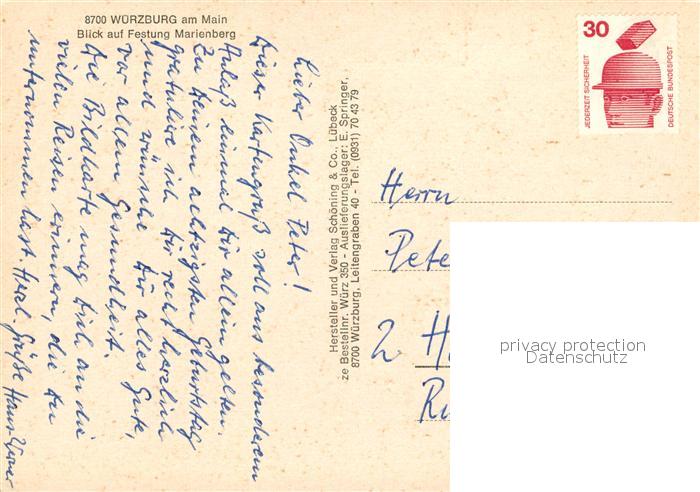 8700 WÜRZBURG am Main
Blick auf Festung Marienberg
Lieber Onkel Peter!
Dieser Kartengruß soll aus besonderem
Anlaß einmal Dir allein gelten.
Zu Deinem achtzigsten Geburtstag
gratuliere ich Dir recht herzlich
und wünsche Dir alles Gute,
vor allem Gesundheit.
Die Bildkarte mag Dich an die
vielen Reisen erinnern, die Du
unternommen hast. Herzl. Grüße Hans-Werner
Hersteller und Verlag Schöning & Co., Lübeck
ze Bestellnr. Würz 350 - Auslieferungslager: E. Springer,
8700 Würzburg, Leitengraben 40 - Tel. (0931) 70 43 79
30
JEDERZEIT SICHERHEIT
DEUTSCHE BUNDESPOST
Herrn
Pete
2 H
Ru
privacy protection
Datenschutz